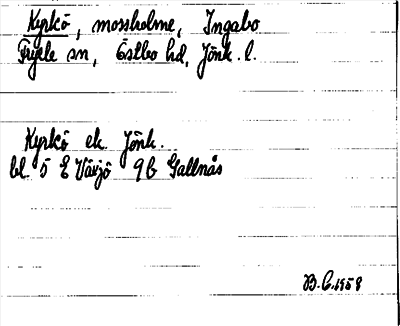 Kyrkö, mossholme, Ingabo
Fryele sn, Östbo hd, Jönk. l.
Kyrkö ek. Jönk.
bl. 5 E Växjö 9 b Gallnås
B.C. 1958